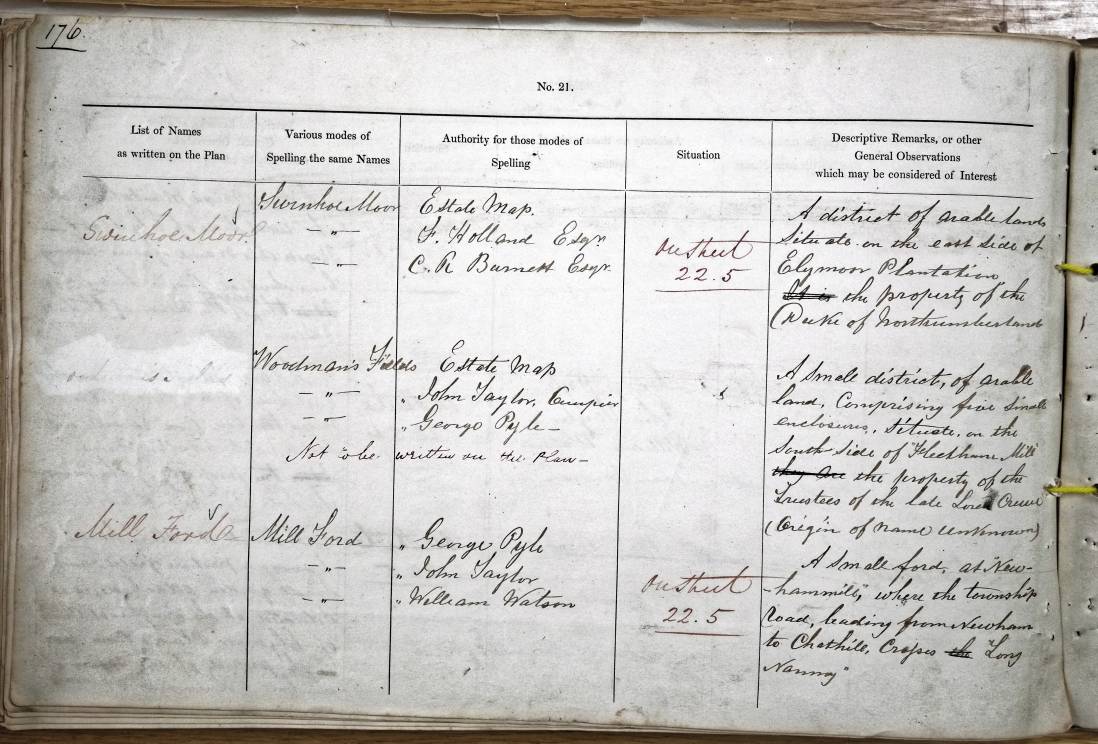 176.
No. 21.
List of Names
as written on the Plan
Various modes of
Spelling the same Names
Authority for those modes of
Spelling
Situation
Descriptive Remarks, or other
General Observations
which may be considered of Interest
Swinhoe Moor
Swinhoe Moor
— „ —
— „ —
Estate Map.
F. Holland Esqr
C. R Burnett Esqr.
On Sheet
22.5
A district of arable land,
Situate on the east side of
Elymoor Plantation
It is the property of the
Duke of Northumberland
Woodman's Fields
— „ —
— „ —
Estate Map
„ John Taylor, Occupier
„ George Pyle —
Not to be written on the Plan —
A small district, of arable
land, Comprising five Small
enclosures, Situate on the
South side of "Fleetham Mill"
they are the property of the
Trustees of the late Lord Crewe
(Origin of name unknown)
Mill Ford
Mill Ford
— „ —
— „ —
„ George Pyle
„ John Taylor
„ William Watson
On Sheet
22.5
A small ford, at "New-
-hammill", where the township
Road, leading from Newham
to Chathill, Crosses the "Long
Nanny"